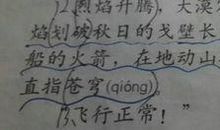 12烈焰升腾，大漠
焰划破秋日的戈壁长
船的火箭，在地动山
直指苍穹(qióng)。
13飞行正常！”